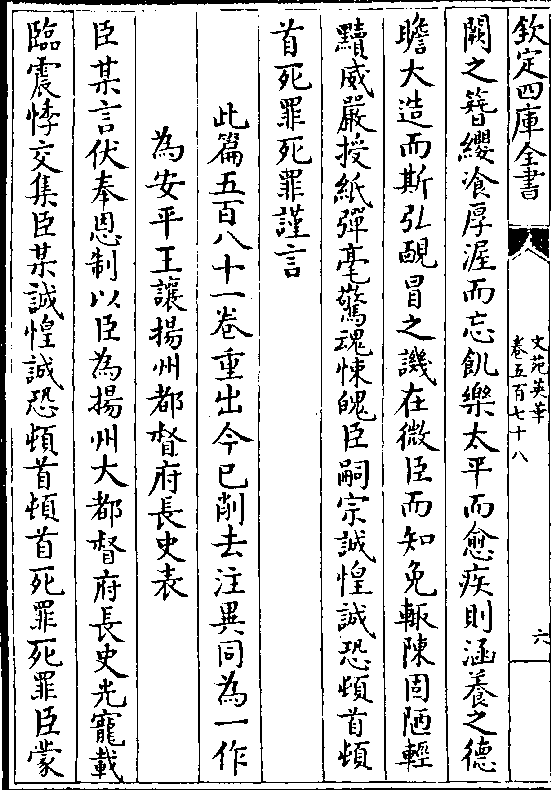 欽定四庫全書
文苑英華
卷五百七十八
六
闕之簪纓飡厚渥而忘飢樂太平而愈疾則涵養之德
瞻大造而斯弘靦冒之譏在微臣而知免輙陳固陋輕
黷威嚴授紙彈毫驚魂悚魄臣嗣宗誠惶誠恐頓首頓
首死罪死罪謹言
此篇五百八十一卷重出今已削去注異同為一作
為安平王讓揚州都督府長史表
臣某言伏奉恩制以臣為揚州大都督府長史光寵載
臨震悸交集臣某誠惶誠恐頓首頓首死罪死罪臣蒙